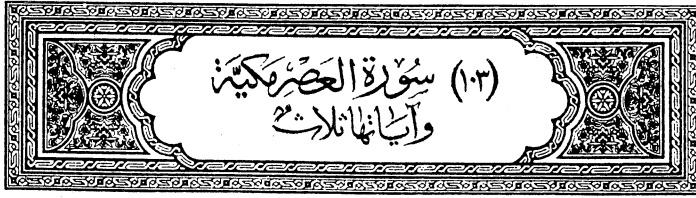 (١٠٣) سُورَة العَصْر مَكيَّة
وَآيَاتهَا ثَلَاثٌ